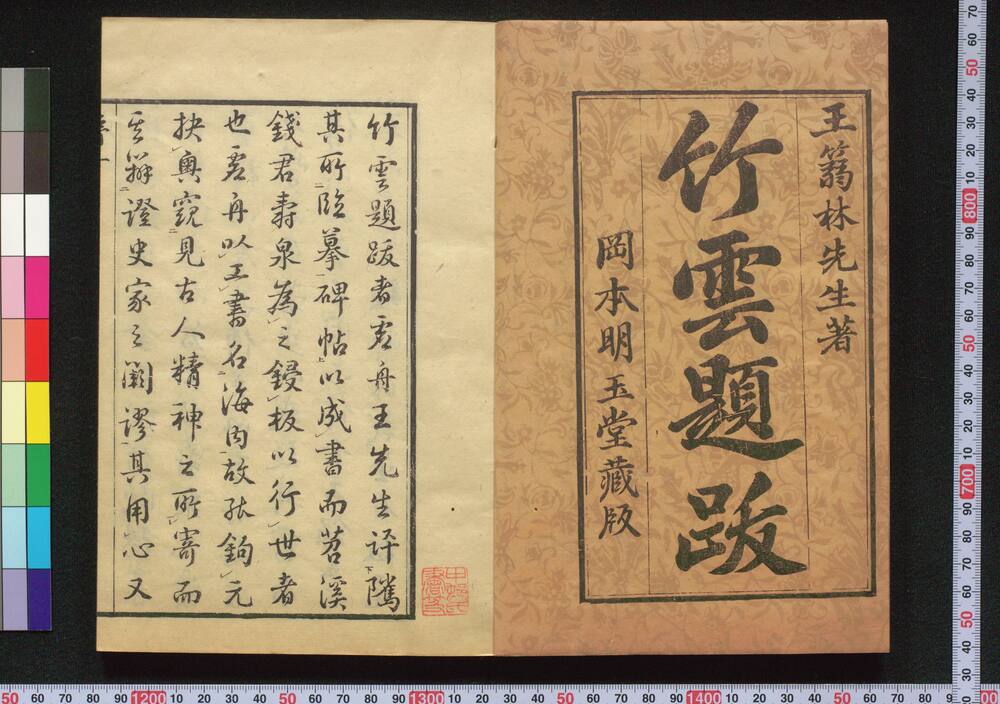 王箬林先生著
竹雲題跋
岡本明玉堂藏版
竹雲題跋者虛舟王先生評隲
其所臨摹碑帖以成書而苕溪
錢君壽泉為之鋟板以行世者
也虛舟以工書名海内故能鉤元
抉奧窺見古人精神之所寄而
其辯證史家之闕謬其用心又